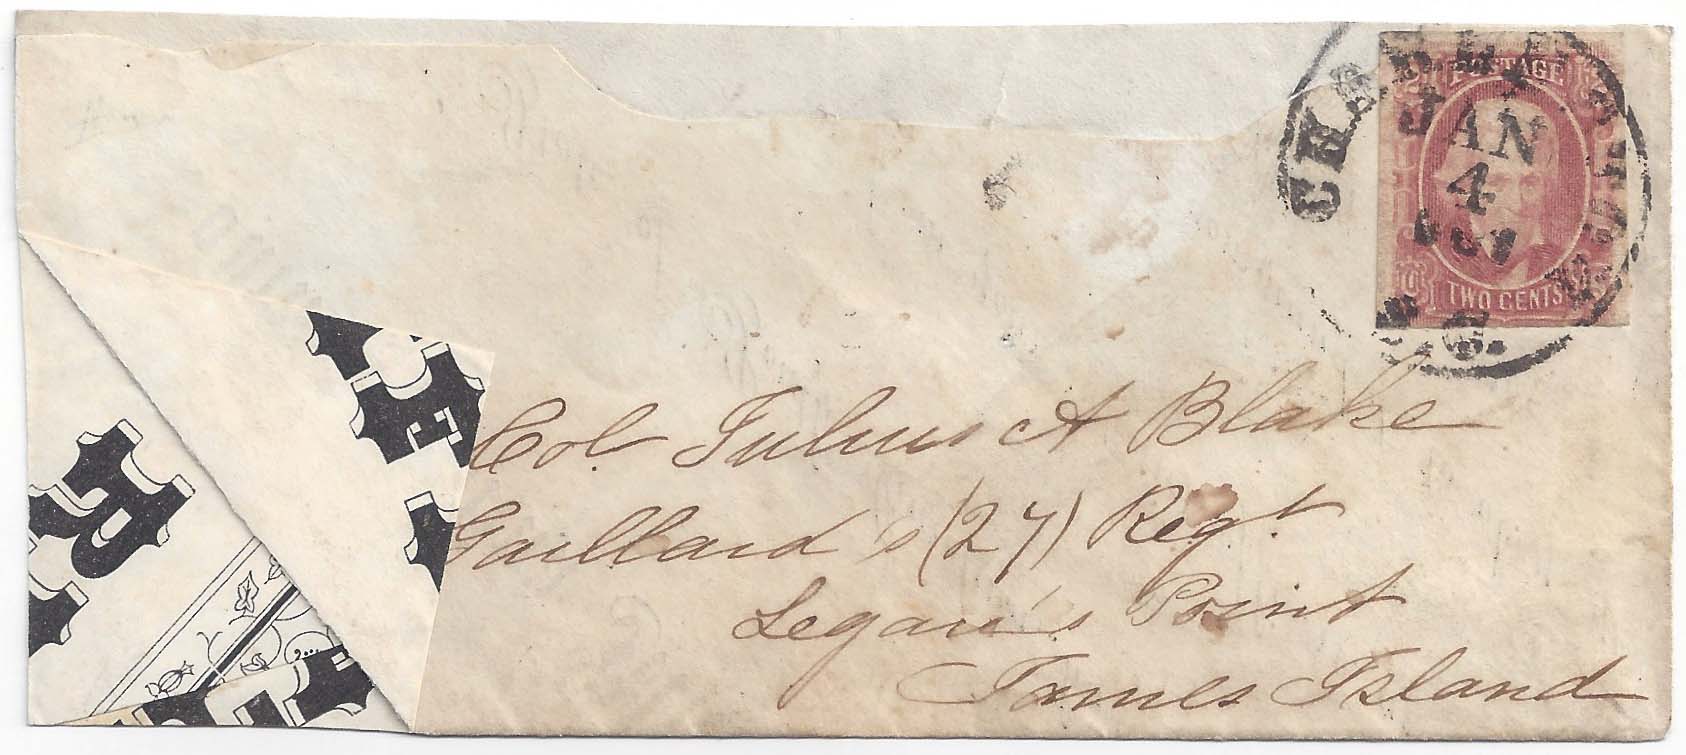 POSTAGE
JAN
4
TWO CENTS
Col Julius A Blake
Gaillard s (27) Regt
Legare's Point
James Island